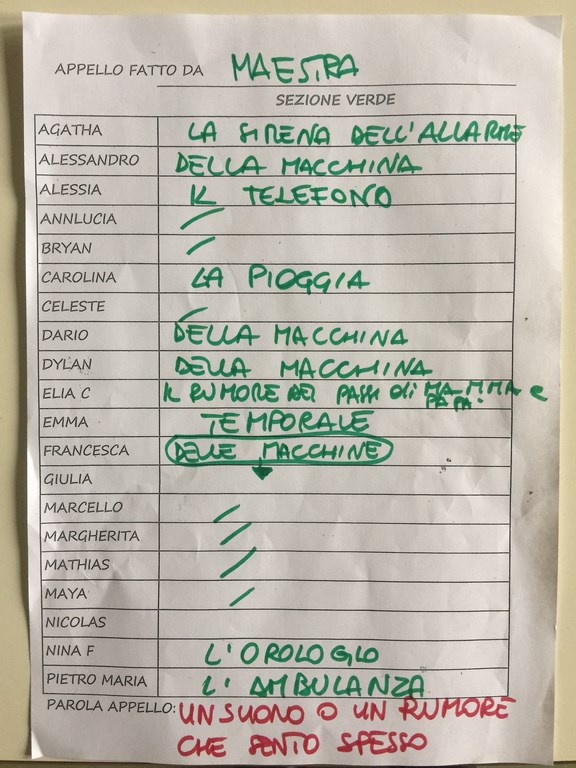 APPELLO FATTO DA MAESTRA
SEZIONE VERDE
AGATHA LA SIRENA DELL'ALLARME
ALESSANDRO DELLA MACCHINA
ALESSIA IL TELEFONO
ANNLUCIA /
BRYAN /
CAROLINA LA PIOGGIA
CELESTE /
DARIO DELLA MACCHINA
DYLAN DELLA MACCHINA
ELIA C IL RUMORE DEI PASSI di MAMMA e PAPA'
EMMA TEMPORALE
FRANCESCA DELLE MACCHINE
GIULIA
MARCELLO /
MARGHERITA /
MATHIAS /
MAYA /
NICOLAS
NINA F L'OROLOGIO
PIETRO MARIA L'AMBULANZA
PAROLA APPELLO: UN SUONO O UN RUMORE
CHE SENTO SPESSO